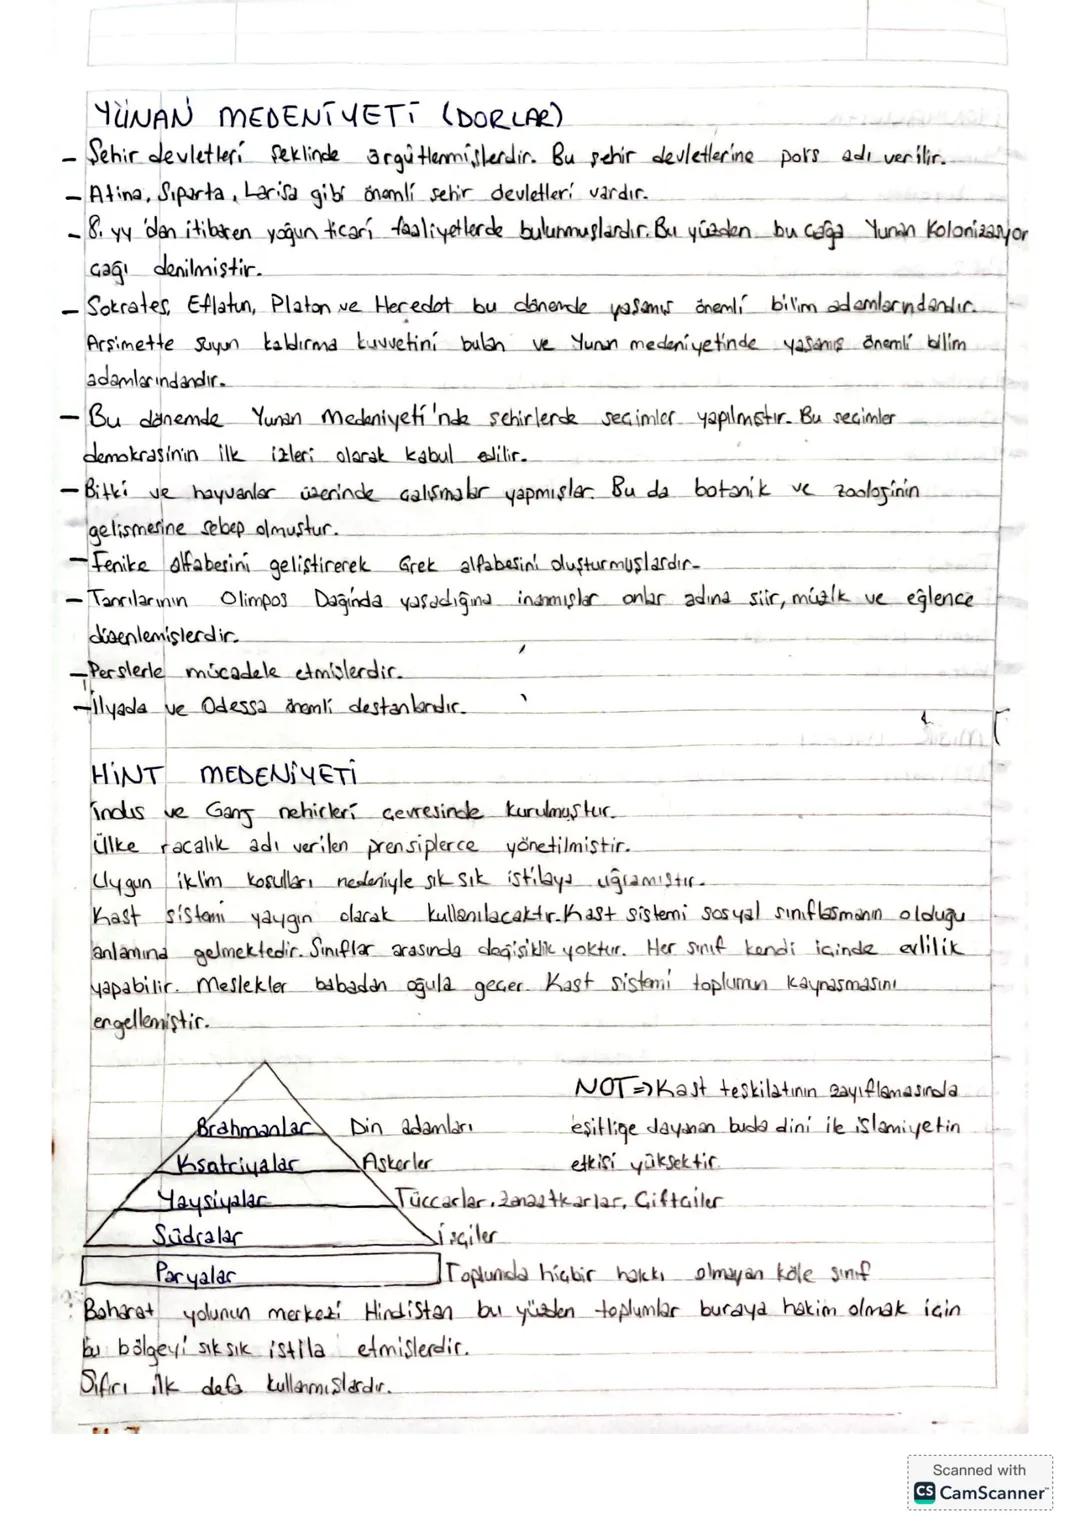 YUNAN MEDENİYETİ (DORLAR)
- Şehir devletleri şeklinde örgütlenmişlerdir. Bu şehir devletlerine polis adı verilir.
- Atina, Sıparta, Larisa gibi önemli şehir devletleri vardır.
- 8. yy'dan itibaren yoğun ticari faaliyetlerde bulunmuşlardır. Bu yüzden bu çağa Yunan Kolonizasyon
çağı denilmiştir.
- Sokrates, Eflatun, Platon ve Heredot bu dönemde yaşamış önemli bilim adamlarındandır.
Arşimette suyun kaldırma kuvvetini bulan ve Yunan medeniyetinde yaşamış önemli bilim
adamlarındandır.
- Bu dönemde Yunan Medeniyeti'nde şehirlerde seçimler yapılmıştır. Bu seçimler
demokrasinin ilk izleri olarak kabul edilir.
- Bitki ve hayvanlar üzerinde çalışmalar yapmışlar. Bu da botanik ve zoolojinin
gelişmesine sebep olmuştur.
- Fenike alfabesini geliştirerek Grek alfabesini oluşturmuşlardır.
- Tanrılarının Olimpos Dağında yaşadığına inanmışlar onlar adına şiir, müzik ve eğlence
düzenlemişlerdir.
- Perslerle mücadele etmişlerdir.
- İlyada ve Odessa önemli destanlardır.
HİNT MEDENİYETİ
İndus ve Ganj nehirleri çevresinde kurulmuştur.
Ülke racalık adı verilen prensiplerce yönetilmiştir.
Uygun iklim koşulları nedeniyle sık sık istilaya uğramıştır.
Kast sistemi yaygın olarak kullanılacaktır. Kast sistemi sosyal sınıflaşmanın olduğu
anlamına gelmektedir. Sınıflar arasında değişiklik yoktur. Her sınıf kendi içinde evlilik
yapabilir. Meslekler babadan oğula geçer. Kast sistemi toplumun kaynaşmasını
engellemiştir.
NOT ⇒ Kast teşkilatının zayıflamasında
eşitliğe dayanan buda dini ile islamiyetin
etkisi yüksektir.
Brahmanlar Din adamları
Ksatriyalar Askerler
Vaysiyalar Tüccarlar, Zanaatkarlar, Çiftçiler
Südralar İşçiler
Paryalar Toplumda hiçbir hakkı olmayan köle sınıf
Baharat yolunun merkezi Hindistan bu yüzden toplumlar buraya hakim olmak için
bu bölgeyi sık sık istila etmişlerdir.
Sıfırı ilk defa kullanmışlardır.
Scanned with
CS CamScanner